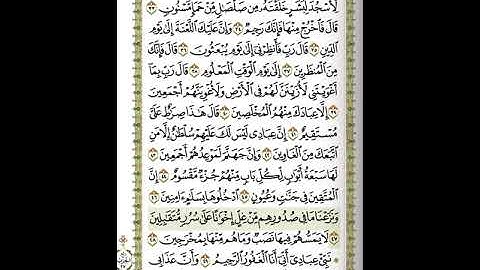 لِأَسْجُدَ لِبَشَرٍ خَلَقْتَهُۥ مِن صَلْصَٰلٍ مِّنْ حَمَإٍ مَّسْنُونٍ ٣٣
قَالَ فَٱخْرُجْ مِنْهَا فَإِنَّكَ رَجِيمٌ ٣٤ وَإِنَّ عَلَيْكَ ٱللَّعْنَةَ إِلَىٰ يَوْمِ
ٱلدِّينِ ٣٥ قَالَ رَبِّ فَأَنظِرْنِىٓ إِلَىٰ يَوْمِ يُبْعَثُونَ ٣٦ قَالَ فَإِنَّكَ
مِنَ ٱلْمُنظَرِينَ ٣٧ إِلَىٰ يَوْمِ ٱلْوَقْتِ ٱلْمَعْلُومِ ٣٨ قَالَ رَبِّ بِمَآ
أَغْوَيْتَنِى لَأُزَيِّنَنَّ لَهُمْ فِى ٱلْأَرْضِ وَلَأُغْوِيَنَّهُمْ أَجْمَعِينَ
٣٩ إِلَّا عِبَادَكَ مِنْهُمُ ٱلْمُخْلَصِينَ ٤٠ قَالَ هَٰذَا صِرَٰطٌ عَلَىَّ
مُسْتَقِيمٌ ٤١ إِنَّ عِبَادِى لَيْسَ لَكَ عَلَيْهِمْ سُلْطَٰنٌ إِلَّا مَنِ
ٱتَّبَعَكَ مِنَ ٱلْغَاوِينَ ٤٢ وَإِنَّ جَهَنَّمَ لَمَوْعِدُهُمْ أَجْمَعِينَ ٤٣
لَهَا سَبْعَةُ أَبْوَٰبٍ لِّكُلِّ بَابٍ مِّنْهُمْ جُزْءٌ مَّقْسُومٌ ٤٤ إِنَّ
ٱلْمُتَّقِينَ فِى جَنَّٰتٍ وَعُيُونٍ ٤٥ ٱدْخُلُوهَا بِسَلَٰمٍ ءَامِنِينَ ٤٦
وَنَزَعْنَا مَا فِى صُدُورِهِم مِّنْ غِلٍّ إِخْوَٰنًا عَلَىٰ سُرُرٍ مُّتَقَٰبِلِينَ
٤٧ لَا يَمَسُّهُمْ فِيهَا نَصَبٌ وَمَا هُم مِّنْهَا بِمُخْرَجِينَ ٤٨
نَبِّئْ عِبَادِىٓ أَنِّىٓ أَنَا ٱلْغَفُورُ ٱلرَّحِيمُ ٤٩ وَأَنَّ عَذَابِى